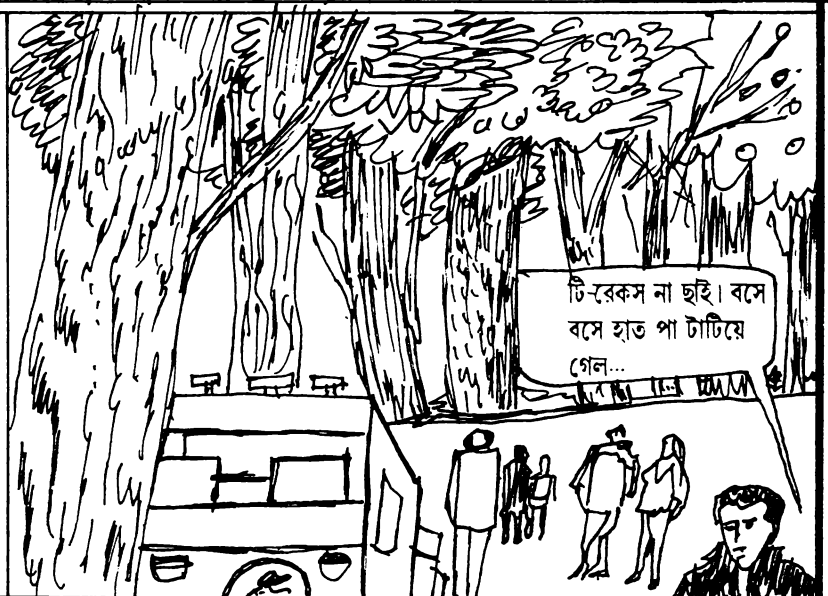 টি-রেকস না ছাই। বসে
বসে হাত পা টাটিয়ে
গেল...